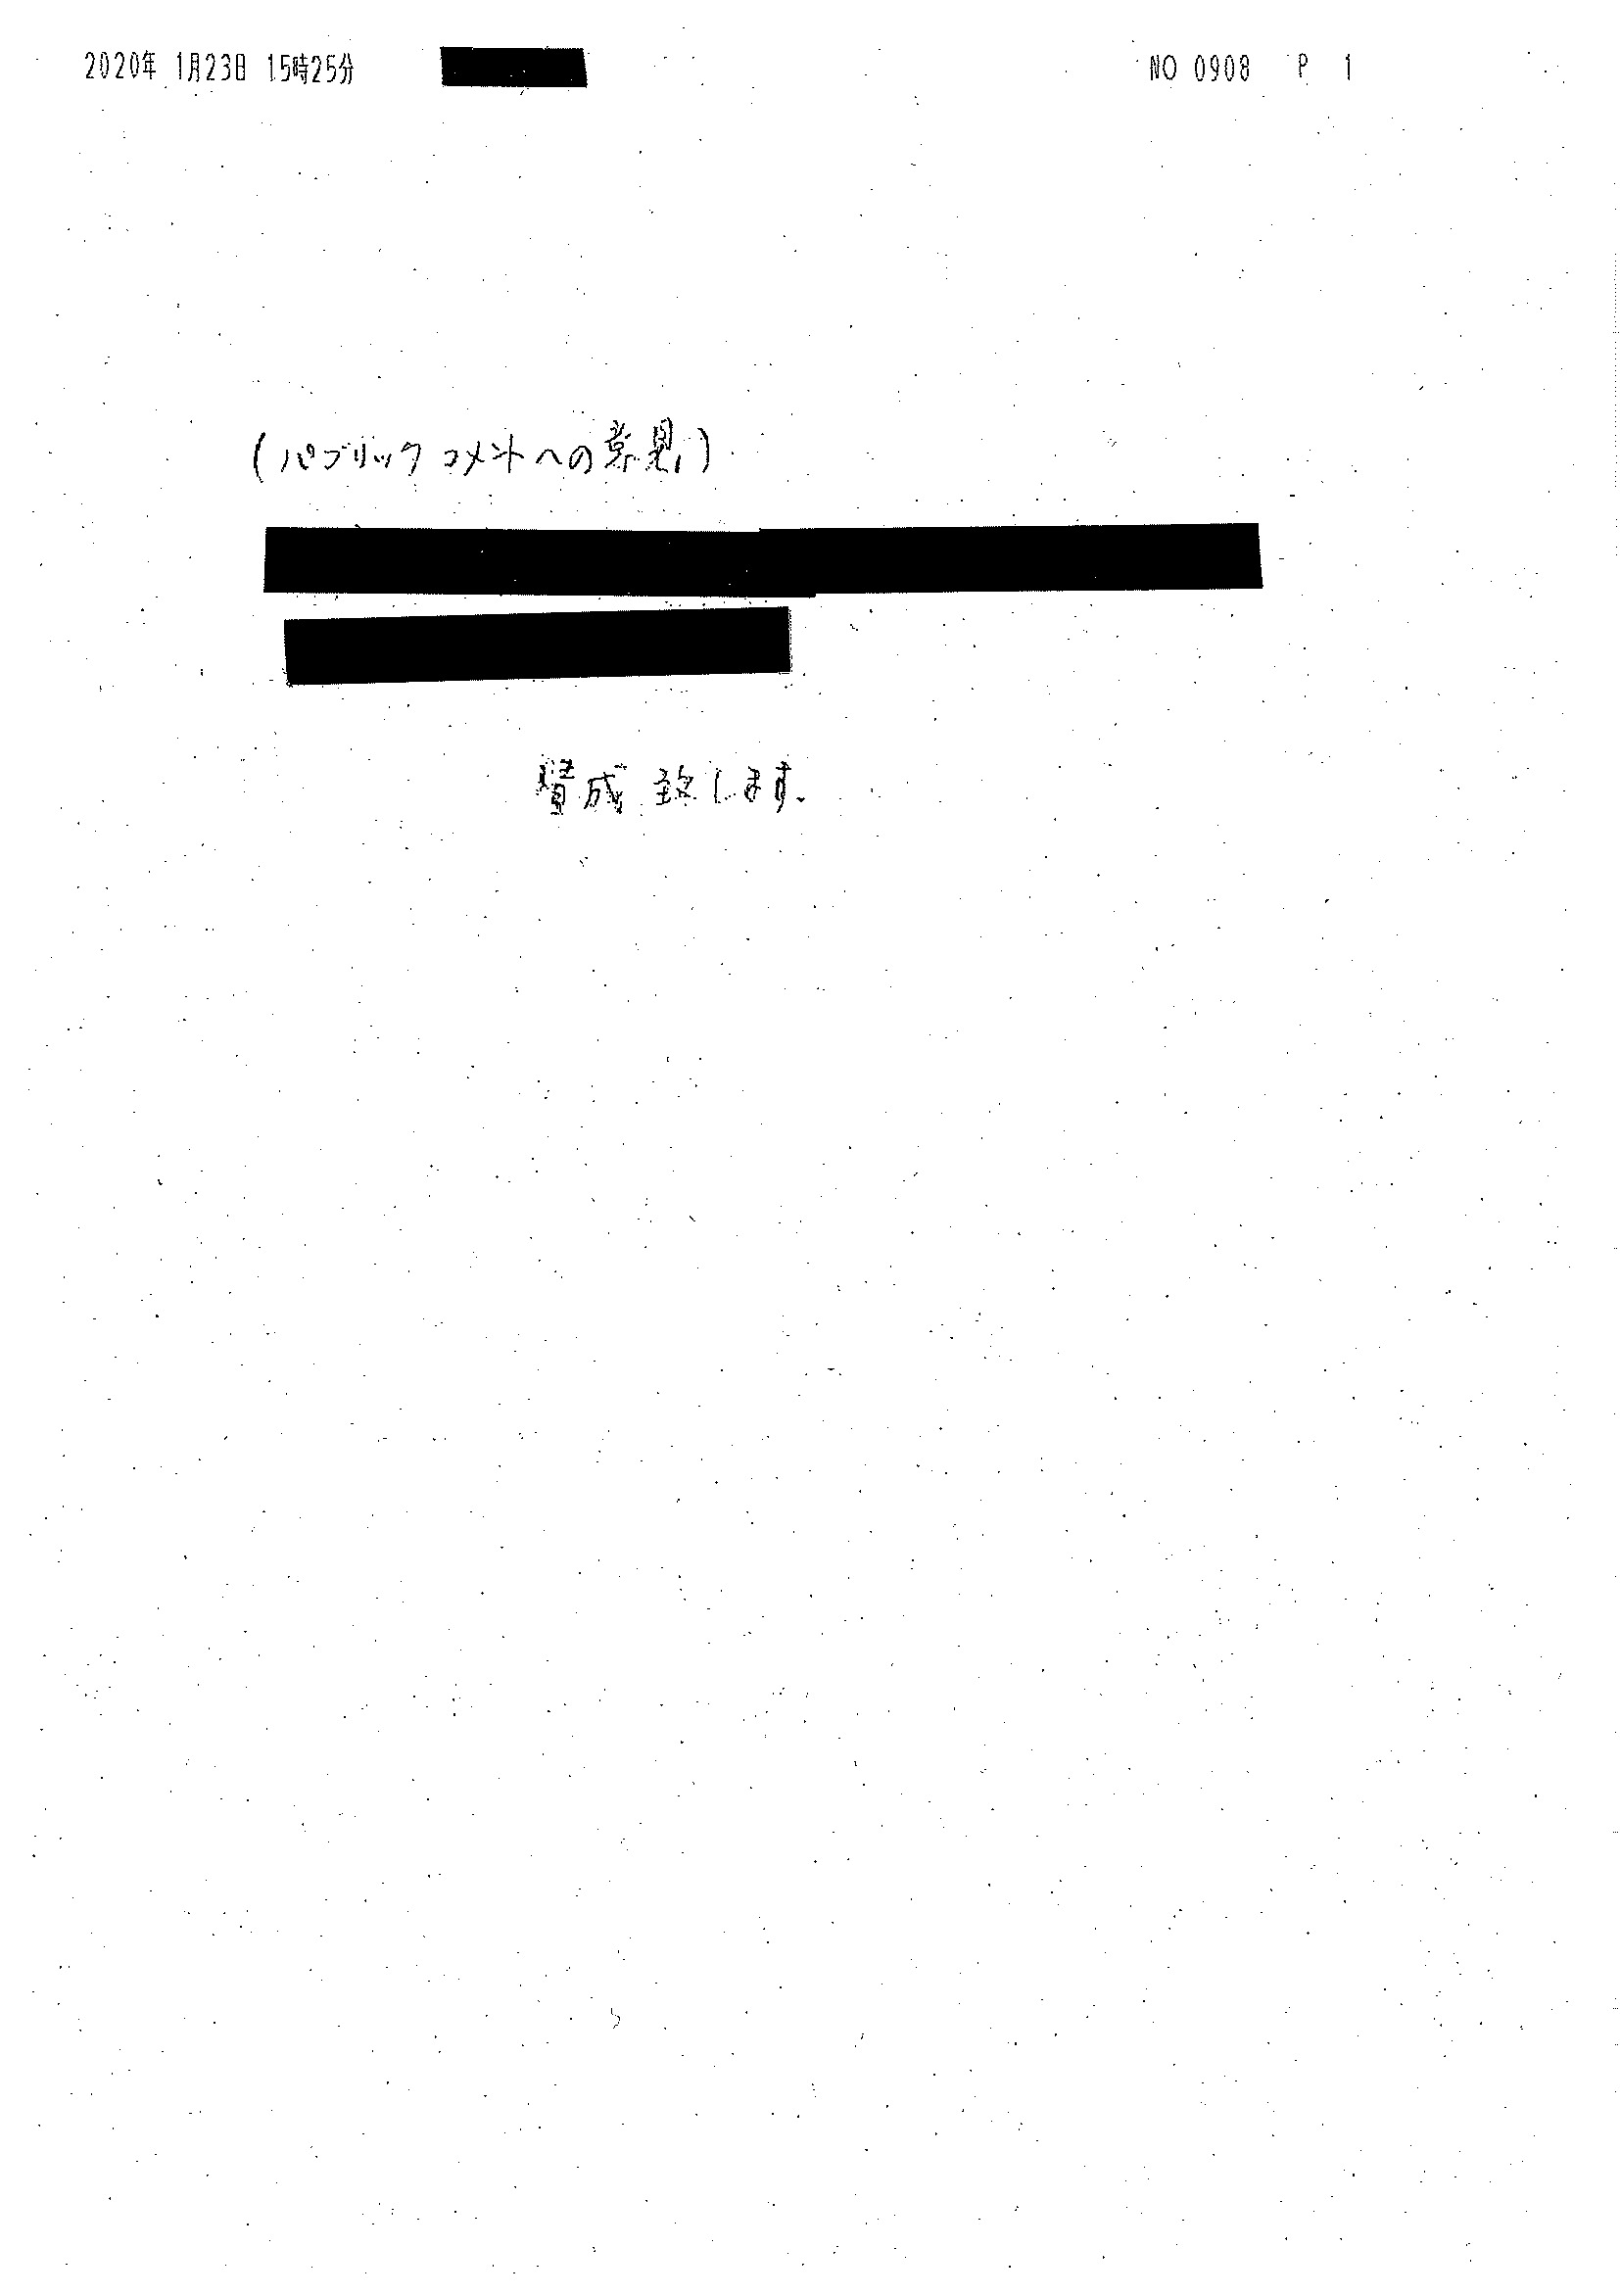 2020年 1月23日 15時25分 NO 0908 P 1
(パブリックコメントへの意見)
賛成致します。